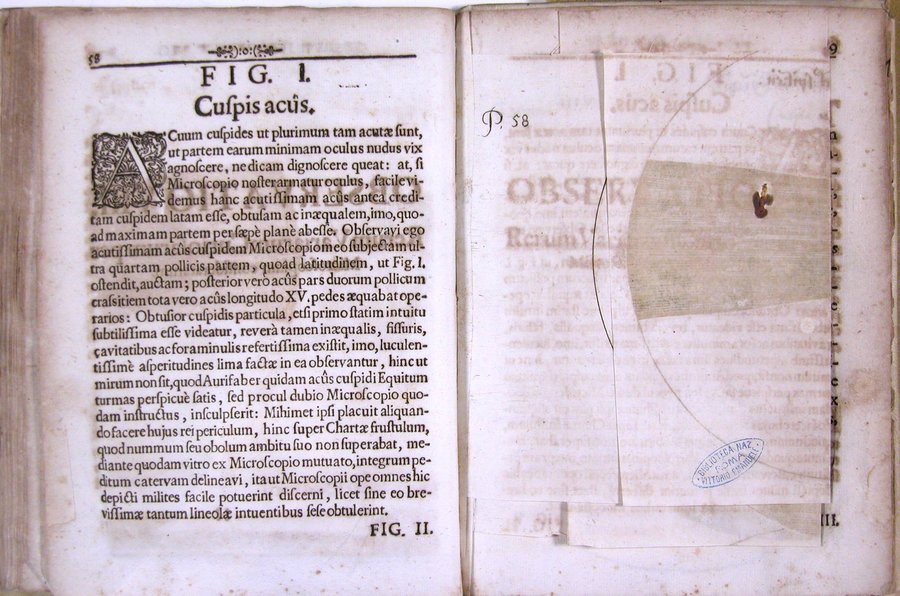 58
FIG. I.
Cuſpis acûs.
ACuum cuſpides ut plurimum tam acutæ ſunt,
ut partem earum minimam oculus nudus vix
agnoſcere, ne dicam dignoſcere queat: at, ſi
Microſcopio noſter armatur oculus, facile vi-
demus hanc acutiſſimam acûs antea credi-
tam cuſpidem latam eſſe, obtuſam ac inæqualem, imo, quo-
ad maximam partem per ſæpè planè abeſſe. Obſervavi ego
acutiſſimam acûs cuſpidem Microſcopio meo ſubjectam ul-
tra quartam pollicis partem, quoad latitudinem, ut Fig. I.
oſtendit, auctam; poſterior vero acûs pars duorum pollicum
craſsitiem tota vero acûs longitudo XV. pedes æquabat ope-
rarios: Obtuſior cuſpidis particula, etſi primo ſtatim intuitu
ſubtiliſſima eſſe videatur, reverà tamen inæqualis, fiſſuris,
çavitatibus ac foraminulis refertiſſima exiſtit, imo, luculen-
tiſſimè aſperitudines lima factæ in ea obſervantur, hinc ut
mirum non ſit, quod Aurifaber quidam acûs cuſpidi Equitum
turmas perſpicuè ſatis, ſed procul dubio Microſcopio quo-
dam inſtructus, inſculpſerit: Mihimet ipſi placuit aliquan-
do facere hujus rei periculum, hinc ſuper Chartæ fruſtulum,
quod nummum ſeu obolum ambitu ſuo non ſuperabat, me-
diante quodam vitro ex Microſcopio mutuato, integrum pe-
ditum catervam delineavi, ita ut Microſcopii ope omnes hic
depicti milites facile potuerint diſcerni, licet ſine eo bre-
viſſimæ tantum lineolæ intuentibus ſeſe obtulerint.
FIG. II.
P. 58
9
OBSER
Rerum Vari
BIBLIOTECA NAZ.
ROMA
VITTORIO EMANUELE
III.